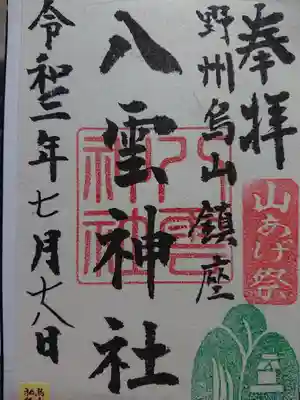 奉拝
野州烏山鎮座
八雲神社
令和二年七月十八日
八雲神社
山あげ祭